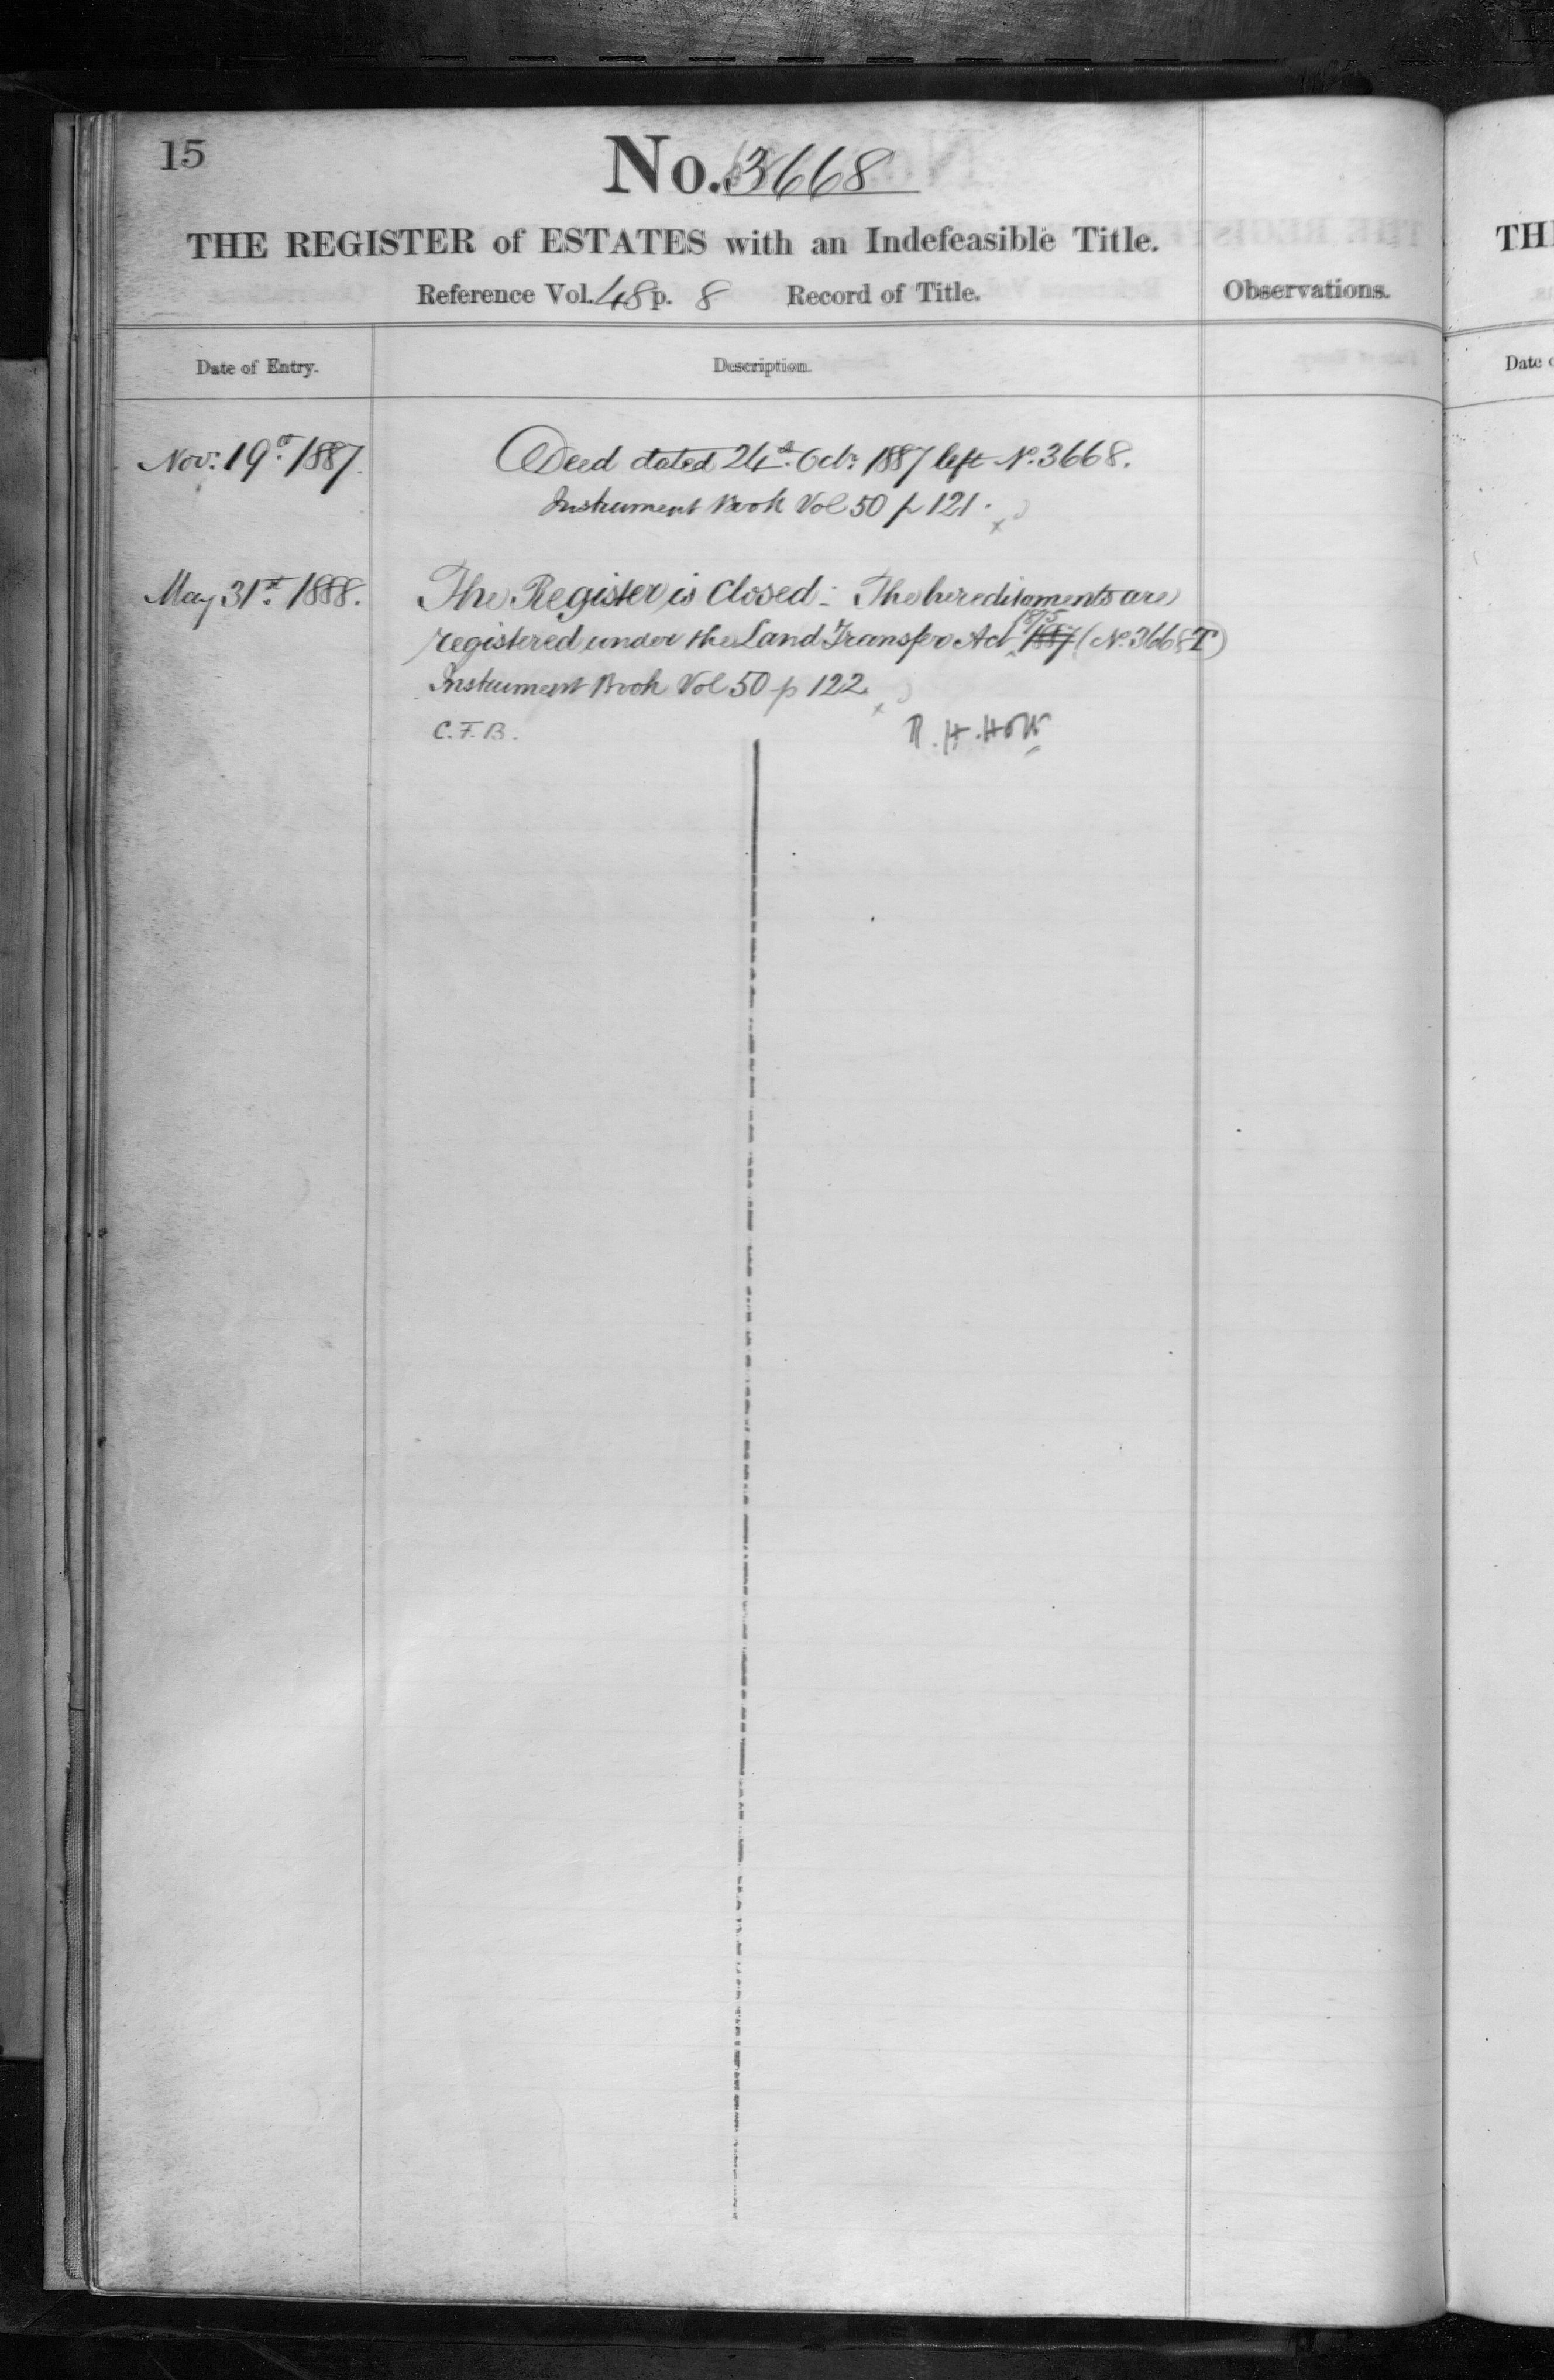 15
No. 3668
THE REGISTER of ESTATES with an Indefeasible Title.
Reference Vol. 48 p. 8 Record of Title.
Observations.
Date of Entry.
Description.
Nov: 19th 1887.
Deed dated 24th Octr 1887 left No. 3668.
Instrument Book Vol 50 p 121.
May 31st 1888.
The Register is Closed - The hereditaments are
registered under the Land Transfer Act 1875 1887 (No. 3668T)
Instrument Book Vol 50 p 122
C.F.B.
R.H. Holt
TH
Date